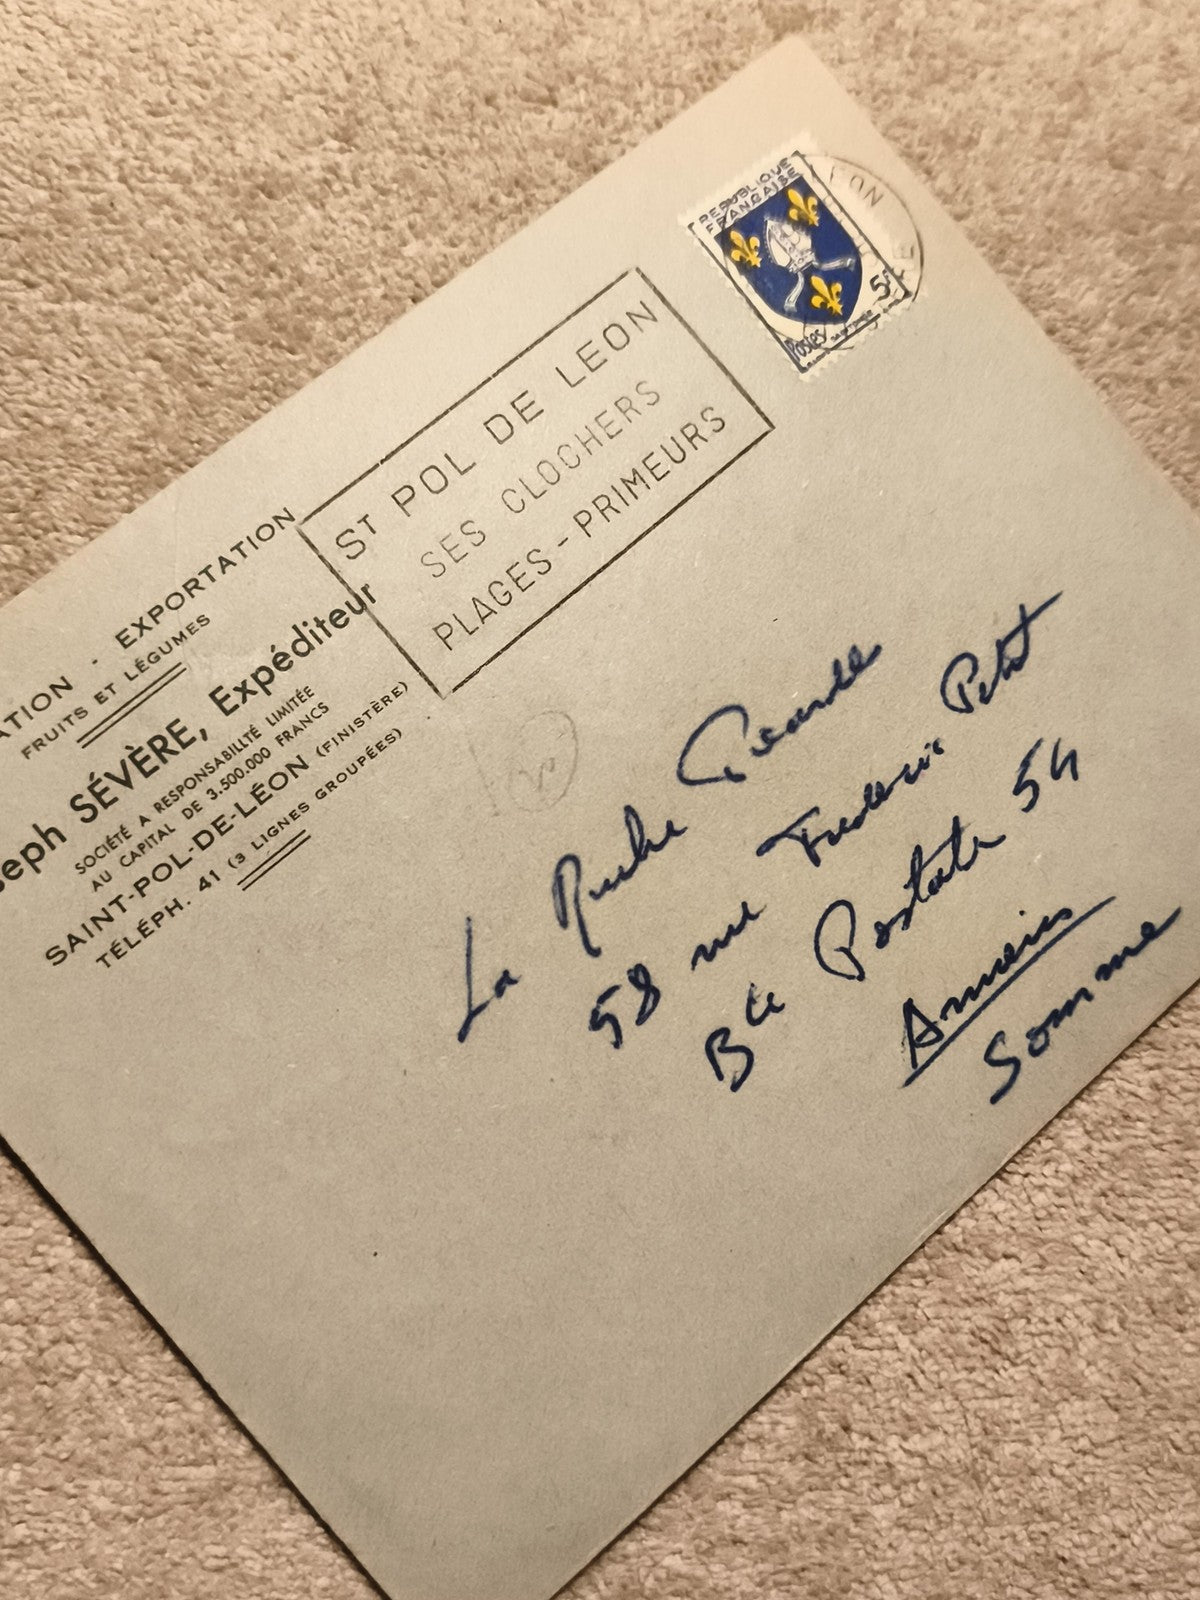 EXPORTATION
FRUITS ET LÉGUMES
SÉVÈRE, Expéditeur
SOCIÉTÉ A RESPONSABILITÉ LIMITÉE
AU CAPITAL DE 3.500.000 FRANCS
SAINT-POL-DE-LÉON (FINISTÈRE)
TÉLÉPH. 41 (3 LIGNES GROUPÉES)
ST POL DE LEON
SES CLOCHERS
PLAGES - PRIMEURS
REPUBLIQUE
FRANÇAISE
5F
Postes
La Ruche Picarde
58 rue Frédéric Petit
Bte Postale 54
Amiens
Somme